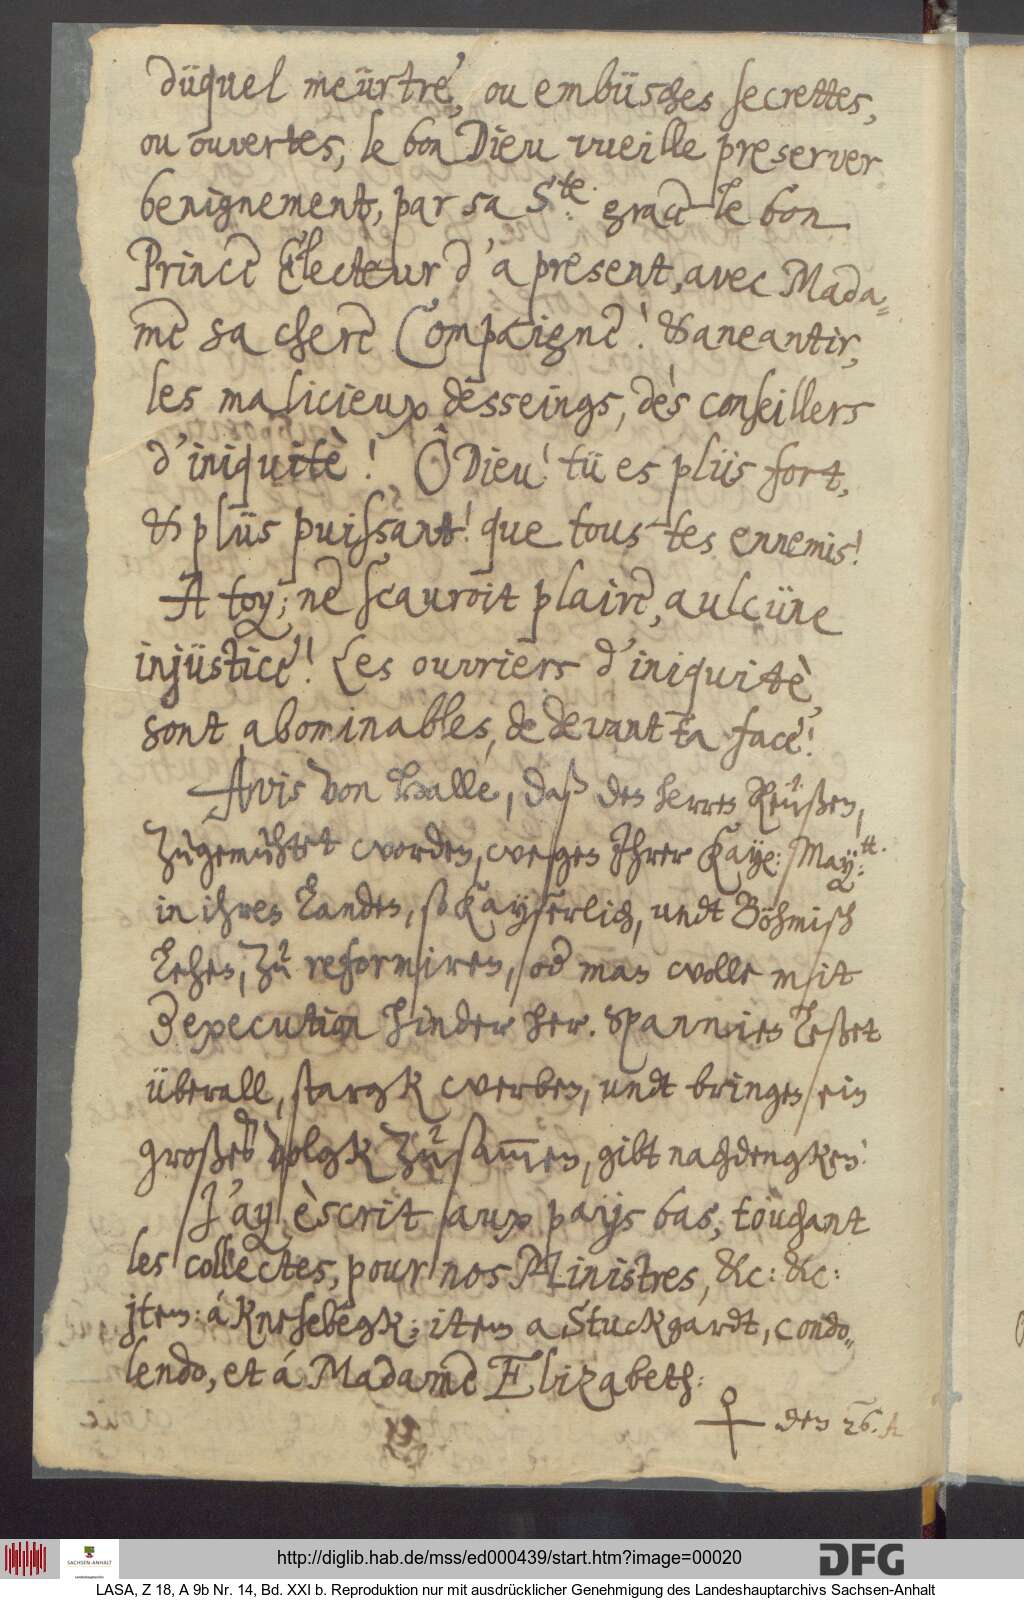 düquel meürtre, ou embüsches secrettes,
ou ouvertes, le bon Dieu vueille preserver
benignement, par sa S.te grace le bon
Prince Electeur d'a present, avec Mada-
me sa chere Compaigne! & aneantir,
les malicieux desseings, dès conseillers
d'iniquitè! Ô Dieu! tü es plüs fort,
& plüs puissant! que tous tes ennemis!
A toy; ne scauroit plaire, aulcüne
injüstice! Les ouvriers d'iniquitè,
sont abominables, de devant ta face!
Avis von Halle, daß den herren Reüßen,
zugemuhtet worden, wegen Ihrer Kaye: May:tt.
in ihren Landen, so Kayserlich, undt Böhmisch
Lehen, zu reformiren, od man wolle mit
der execution hinder her. Spannien leßet
überall, stargk werben, undt bringen ein
großes volgk zusammen, gibt nachdengken!
J'ay èscrit aux païjs bas, toüchant
les collectes, pour nos Ministres, &c: &c:
jtem: á Knesebegk; item a Stuckgardt, condo-
lendo, et á Madame Elizabeth:
♀ den 26.
http://diglib.hab.de/mss/ed000439/start.htm?image=00020
SACHSEN-ANHALT
DFG
LASA, Z 18, A 9b Nr. 14, Bd. XXI b. Reproduktion nur mit ausdrücklicher Genehmigung des Landeshauptarchivs Sachsen-Anhalt